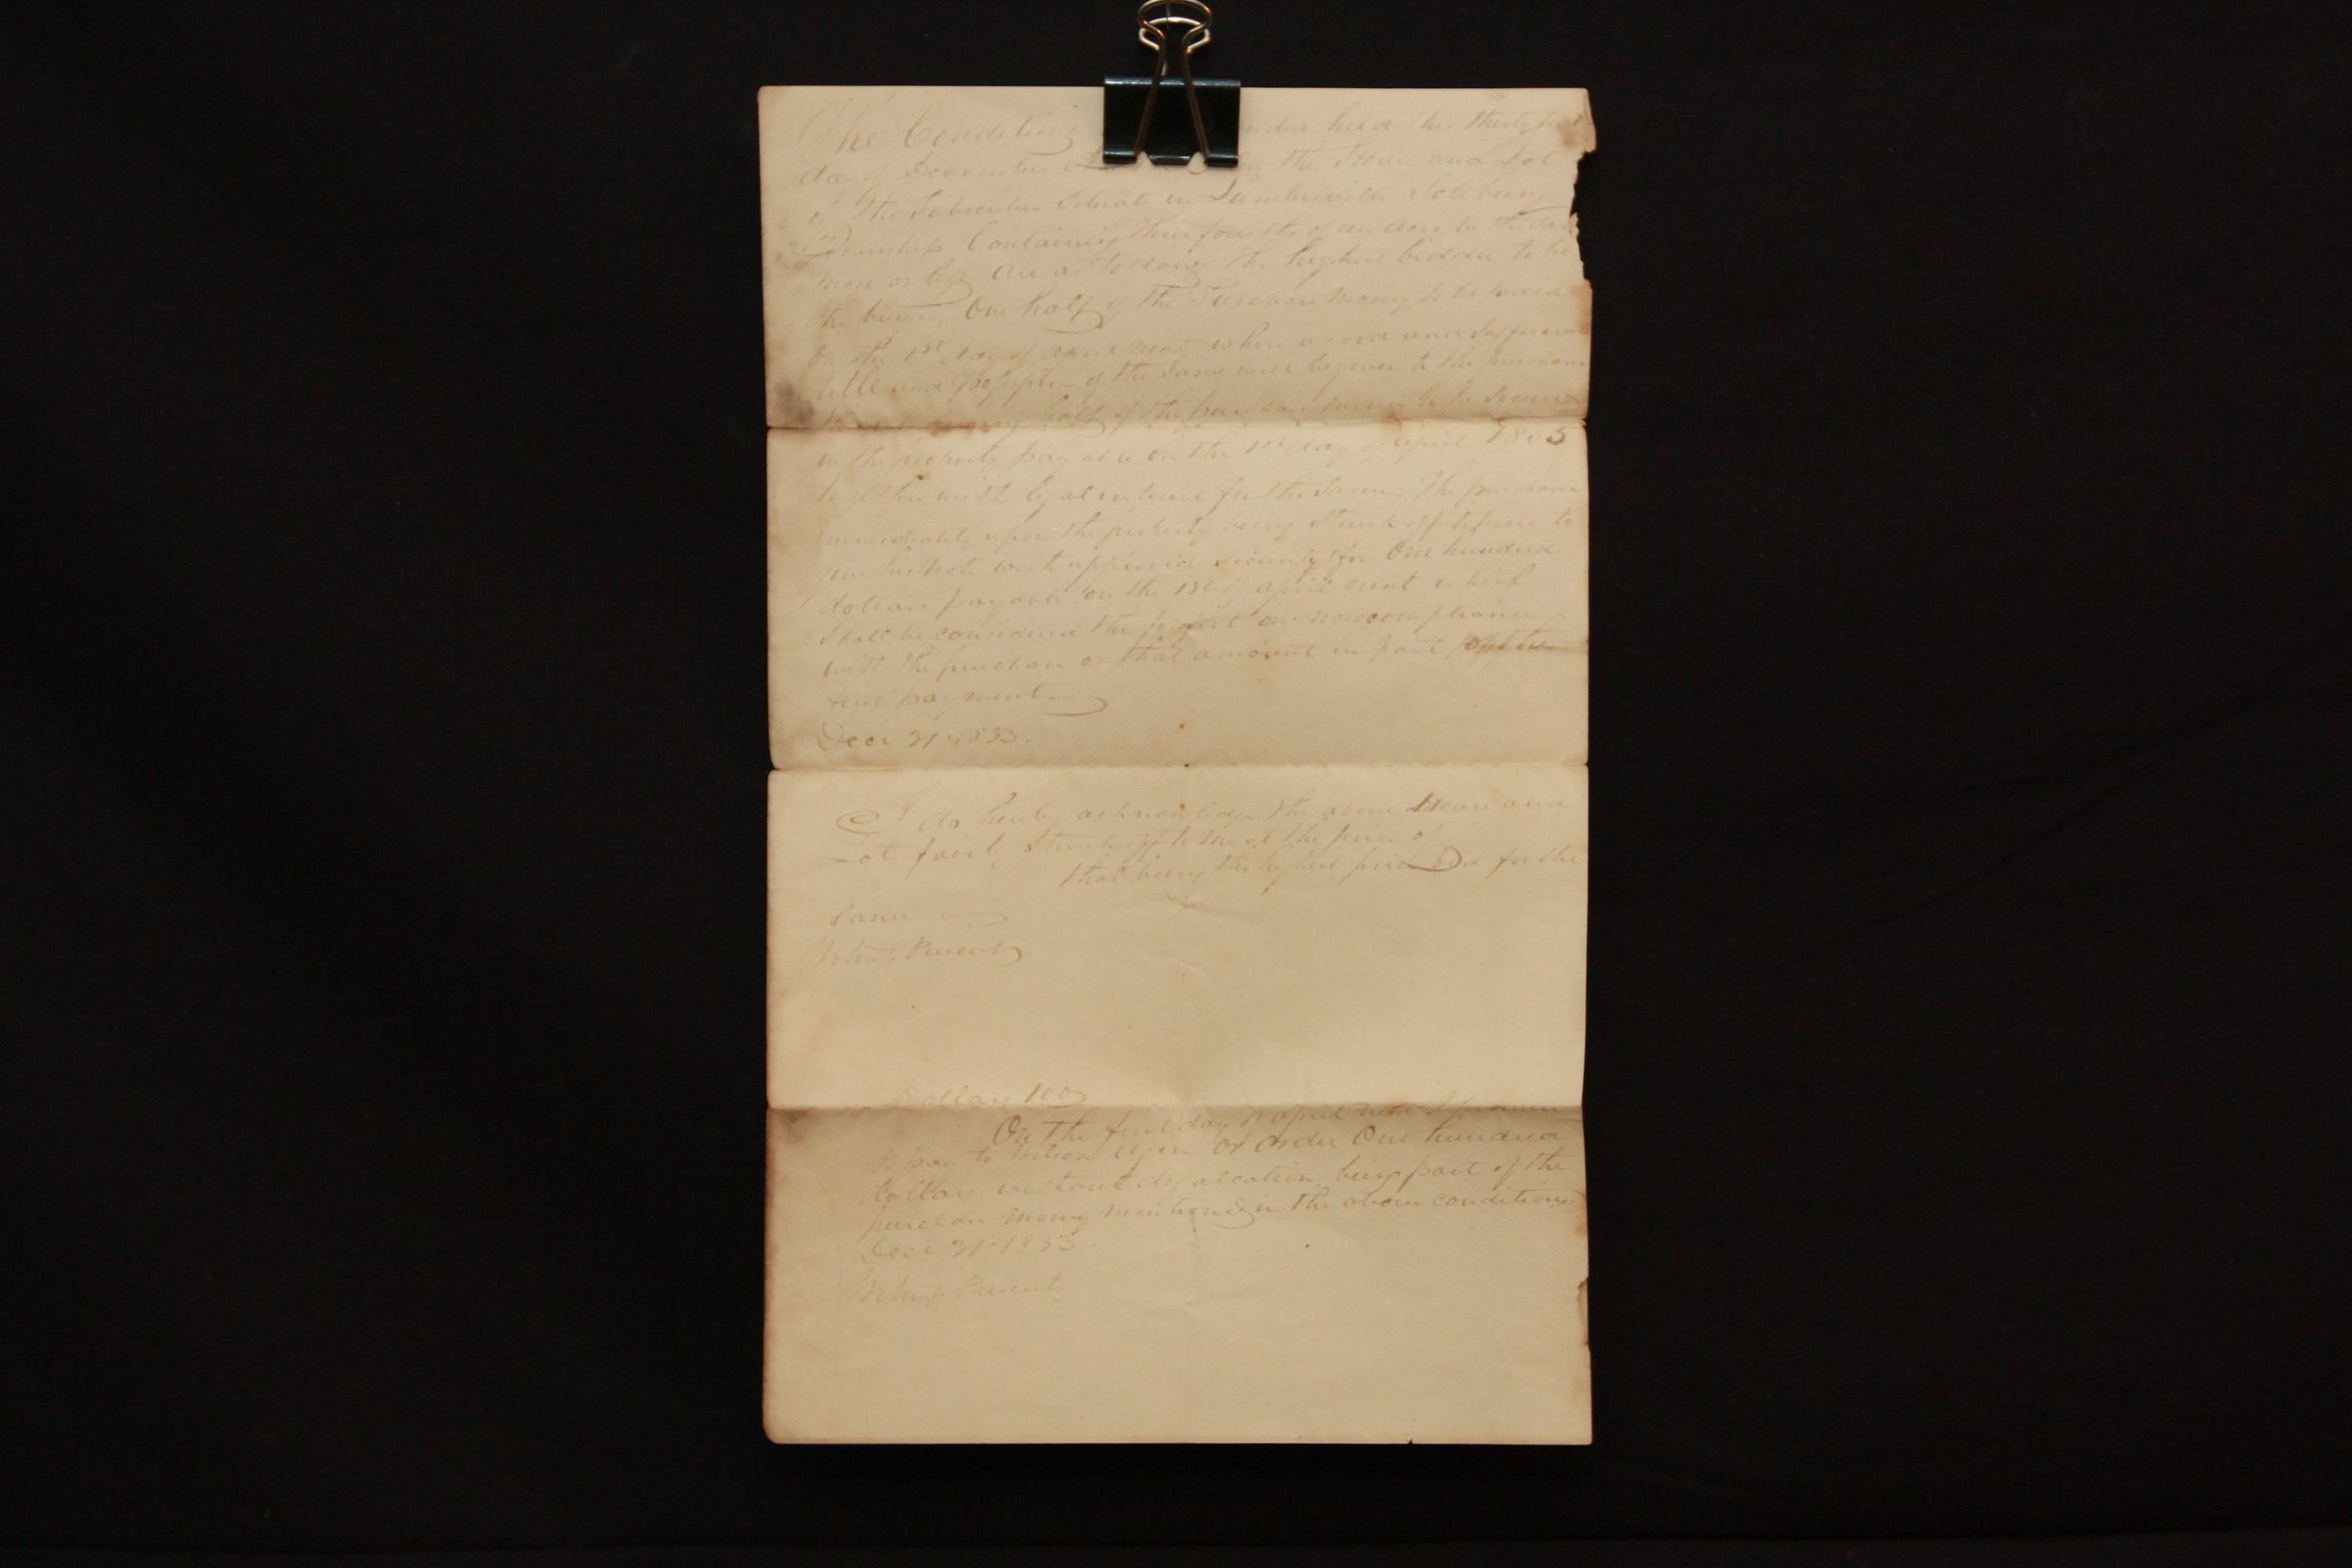 The Conditions held this thirty first
day of December the House and Lot
of the Subscriber Situate in Lumberville Solebury
Township Containing three fourths of an acre be the same
more or less are as follows the highest bidder to be
the buyer. One half of the Purchase money to be paid
On the 1st day of april next when a good and Sufficient
title and possession of the Same will be given to the purchaser
half of the purchase money to be Secured
in the property payable on the 1st day of april 1835
together with legal interest for the Same. The purchaser
immediately upon the property being Struck off to him to
give his note with approved Security for One hundred
dollars payable on the 1st of april next which
Shall be considered the forfeit on noncompliance
with the purchase or that amount in part of the
payment
Decr 31. 1833.
I do hereby acknowledge the above House and
Lot fairly Struck off to me at the price of
that being the highest price bid for the
Same
Witness Present
Dollars 100
On the first day of april next I promise
to pay to or order One hundred
dollars without defalcation being part of the
purchase money mentioned in the above conditions
Decr 31. 1833
Witness Present